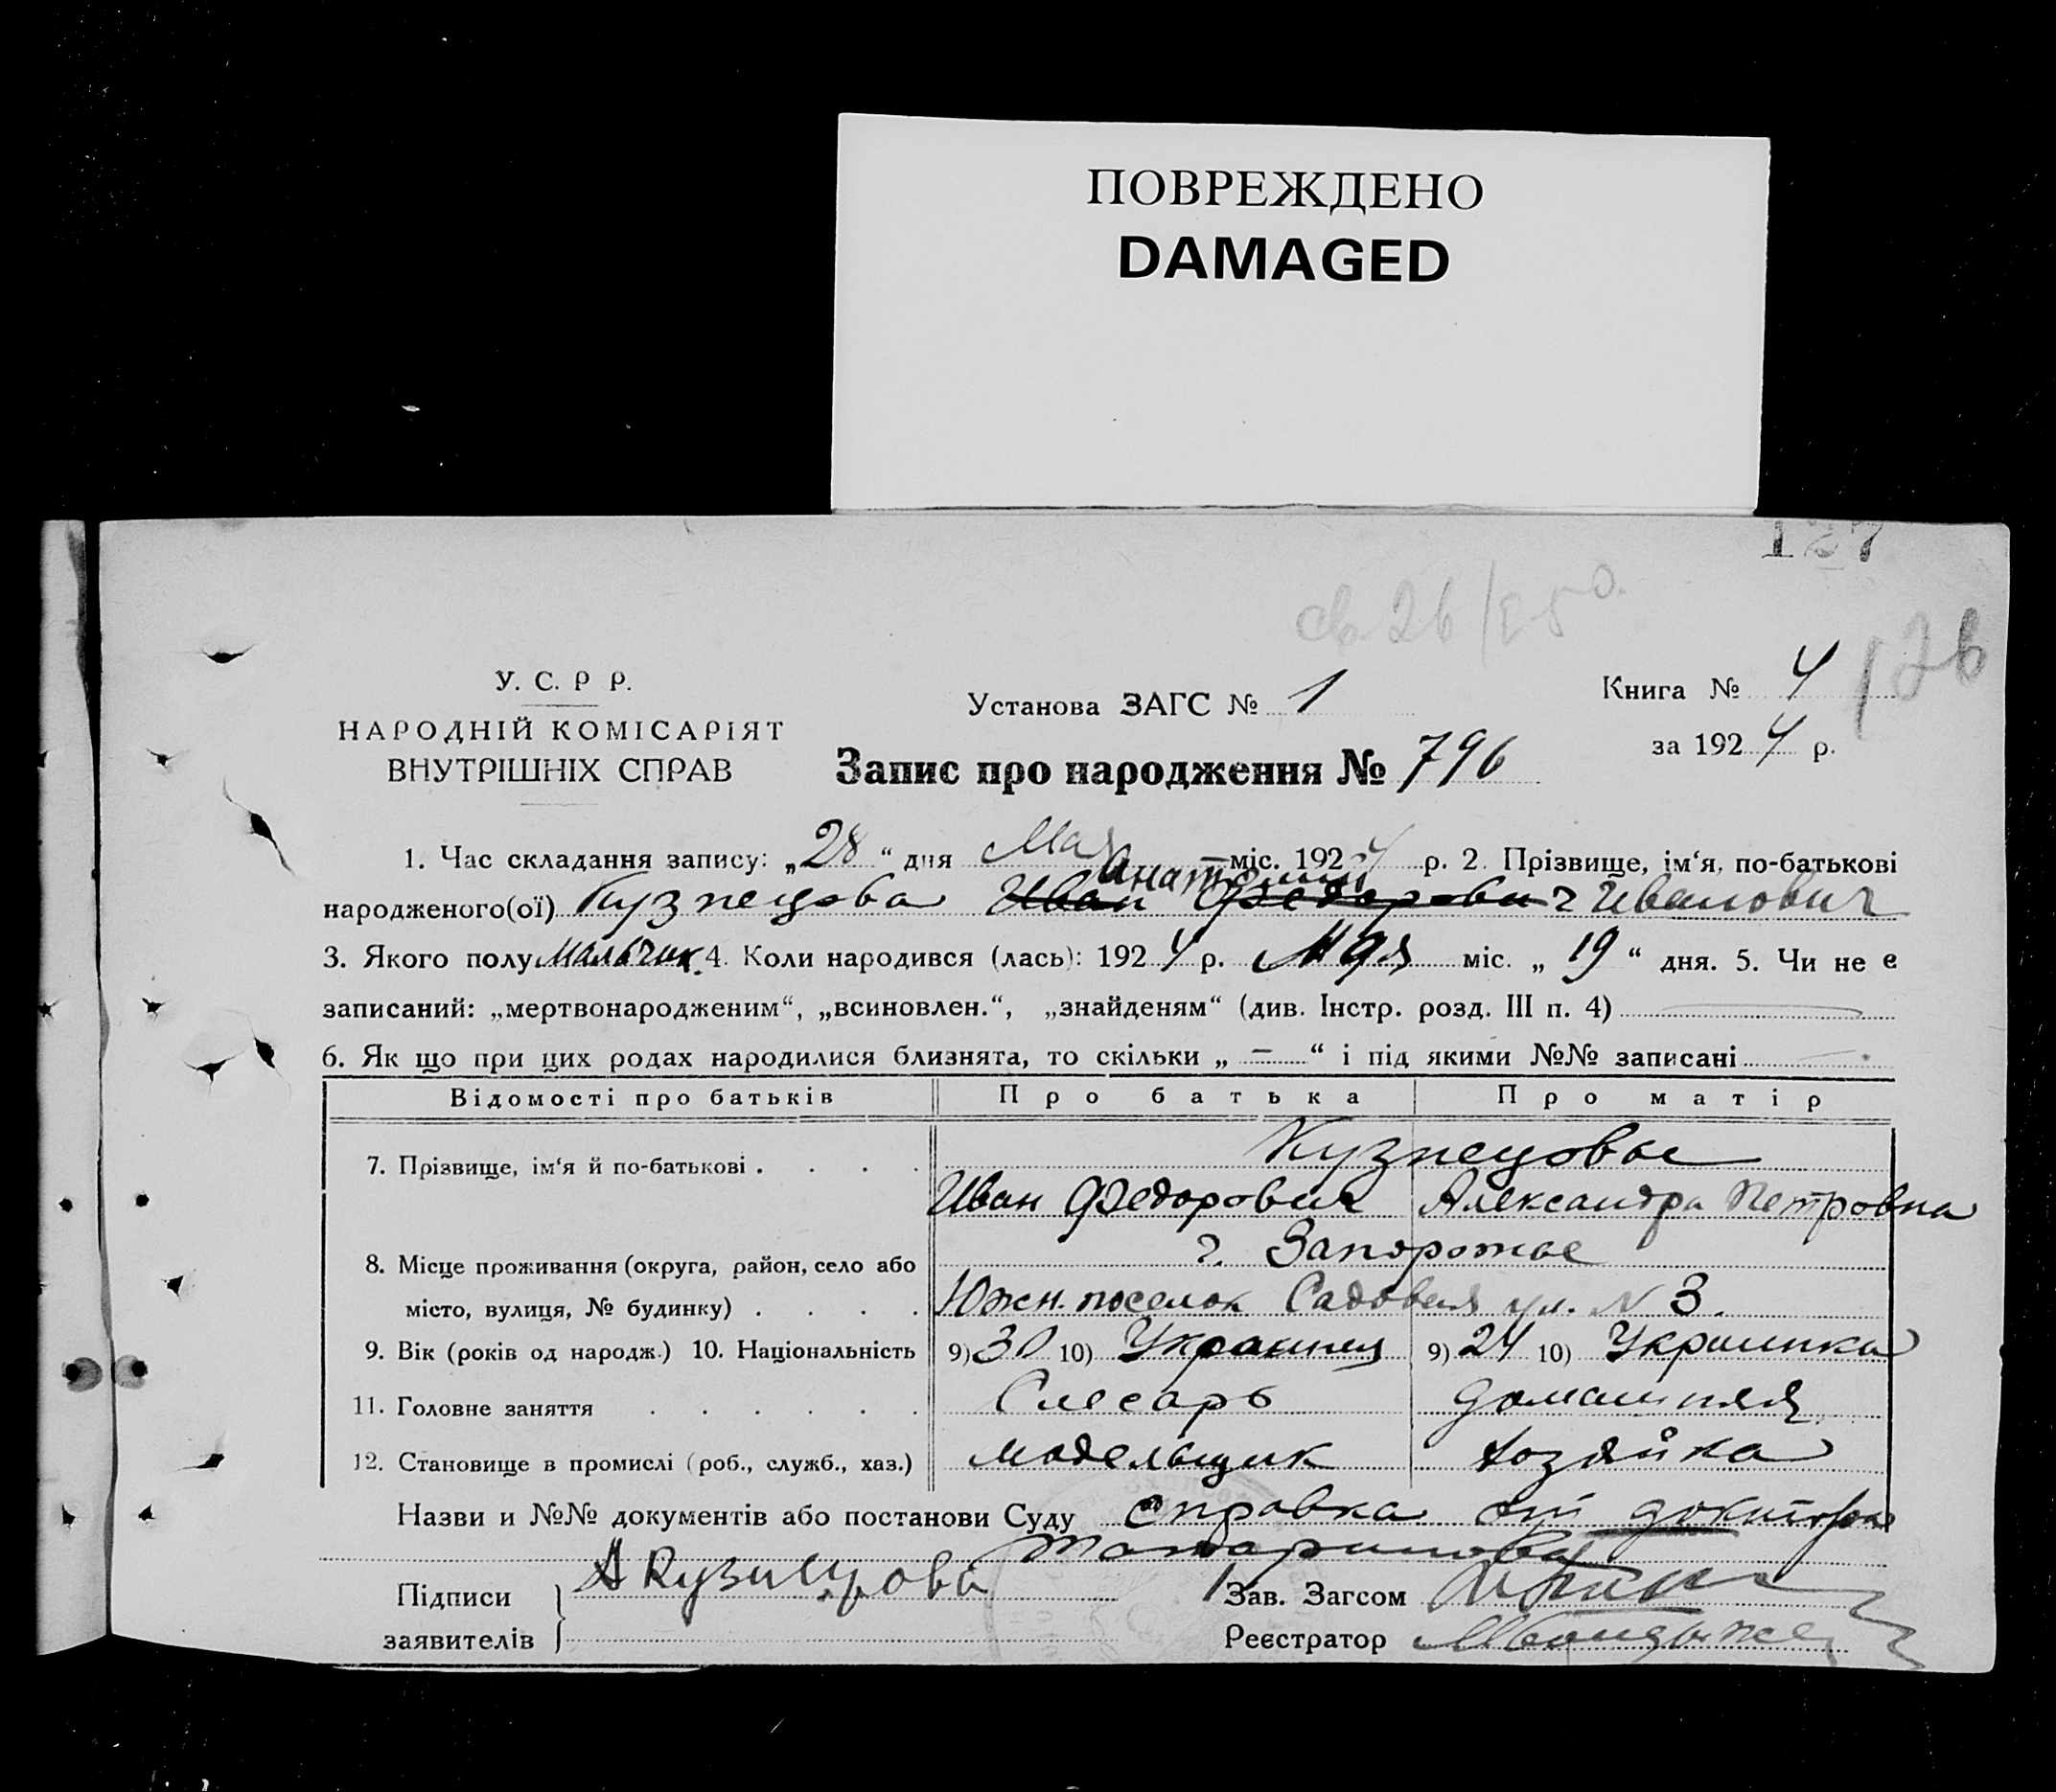 ПОВРЕЖДЕНО
DAMAGED
127
126
У. С. Р Р.
НАРОДНІЙ КОМІСАРІЯТ
ВНУТРІШНІХ СПРАВ
Установа ЗАГС № 1
Книга № 4
за 1924 р.
Запис про народження № 796
1. Час складання запису: „28“ дня Мая міс. 1924 р. 2. Прізвище, ім‘я, по-батькові
Анатолий
народженого(ої) Кузнецова Иван Федорович Иванович
3. Якого полу мальчик 4. Коли народився (лась): 1924 р. Мая міс. „19“ дня. 5. Чи не є
записаний: „мертвонародженим“, „всиновлен.“, „знайденям“ (див. Інстр. розд. III п. 4)
6. Як що при цих родах народилися близнята, то скільки „ — “ і під якими №№ записані
Відомості про батьків Про батька Про матір
Кузнецовы
7. Прізвище, ім‘я й по-батькові
Иван Федорович Александра Петровна
г. Запорожье
8. Місце проживання (округа, район, село або
місто, вулиця, № будинку) Южн. поселок Садовая ул. N 3.
9. Вік (років од народж.) 10. Національність 9) 30 10) Украинец 9) 24 10) Украинка
11. Головне заняття Слесарь домашняя
12. Становище в промислі (роб., служб., хаз.) модельщик хозяйка
Назви и №№ документів або постанови Суду справка от доктора
Татаринова
Підписи А Кузнецова Зав. Загсом
заявителів Реєстратор